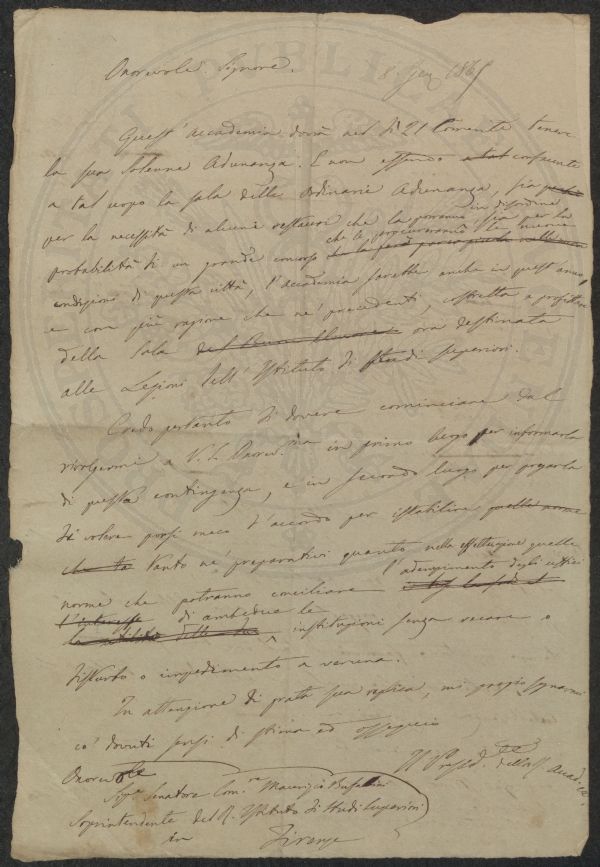 Onorevole Signore. 8. Gen 1865
Quest' Accademia dovrà nel dì 21 Corrente tenere
la sua Solenne Adunanza. E non essendo confacente
a tal uopo la sala delle ordinarie Adunanze, sia
per la necessità di alcuni restauri che la pongono in disordine, sia per la
probabilità di un grande concorso che le procureranno le nuove
condizioni di questa città, l'Accademia sarebbe anche in quest'anno,
e con più ragione che ne' precedenti, costretta a profittare
della Sala ora destinata
alle Lezioni dell' Istituto di Studi Superiori.
Credo pertanto di dovere cominciare dal
rivolgermi a V. S. Onorev.ma in primo luogo per informarla
di questa contingenza, e in secondo luogo per pregarla
di volere porsi meco d'accordo per istabilire
tanto ne' preparativi quanto nella effettuazione quelle
norme che potranno conciliare l'adempimento degli uffici
l'interesse di ambedue le
istituzioni senza recare o
disturbo o impedimento a veruna.
In attenzione di grata sua replica, mi pregio segnarmi
co' dovuti sensi di stima ed ossequio
Onorevole Il Presid.te della Accad.a
Sig.e Senatore Com.e Maurizio Bufalini
Soprintendente del R. Istituto di Studi Superiori
in Firenze